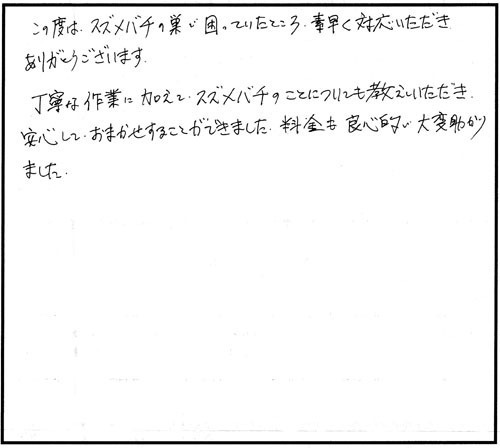 この度は、スズメバチの巣で困っていたところ、素早く対応いただき
ありがとうございます。
丁寧な作業に加えて、スズメバチのことについても教えていただき、
安心しておまかせすることができました。料金も良心的で大変助かり
ました。